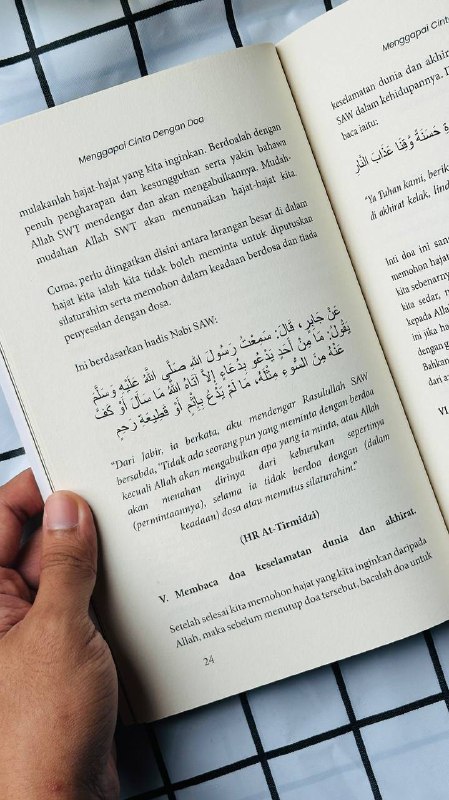 Menggapai Cinta Dengan Doa
mulakanlah hajat-hajat yang kita inginkan. Berdoalah dengan
penuh pengharapan dan kesungguhan serta yakin bahawa
Allah SWT mendengar dan akan mengabulkannya. Mudah-
mudahan Allah SWT akan menunaikan hajat-hajat kita.
Cuma, perlu diingatkan disini antara larangan besar di dalam
hajat kita ialah kita tidak boleh meminta untuk diputuskan
silaturahim serta memohon dalam keadaan berdosa dan tiada
penyesalan dengan dosa.
Ini berdasarkan hadis Nabi SAW:
عَنْ جَابِرٍ، قَالَ: سَمِعْتُ رَسُولَ اللهِ صَلَّى اللهُ عَلَيْهِ وَسَلَّمَ
يَقُولُ: مَا مِنْ أَحَدٍ يَدْعُو بِدُعَاءٍ إِلَّا آتَاهُ اللهُ مَا سَأَلَ أَوْ كَفَّ
عَنْهُ مِنَ السُّوءِ مِثْلَهُ، مَا لَمْ يَدْعُ بِإِثْمٍ أَوْ قَطِيعَةِ رَحِمٍ
"Dari Jabir, ia berkata, aku mendengar Rasulullah SAW
bersabda, 'Tidak ada seorang pun yang meminta dengan berdoa
kecuali Allah akan mengabulkan apa yang ia minta, atau Allah
akan menahan dirinya dari keburukan sepertinya
(permintaannya), selama ia tidak berdoa dengan (dalam
keadaan) dosa atau memutus silaturahim."
(HR At-Tirmidzi)
V. Membaca doa keselamatan dunia dan akhirat.
Setelah selesai kita memohon hajat yang kita inginkan daripada
Allah, maka sebelum menutup doa tersebut, bacalah doa untuk
24
Menggapai Cinta
keselamatan dunia dan akhir
SAW dalam kehidupannya. D
baca iaitu:
حَسَنَةً وَقِنَا عَذَابَ النَّارِ
'Ya Tuhan kami, berik
di akhirat kelak, lind
Inti doa ini san
memohon hajat
kita sebenarny
kita sedar,
kepada Allah
ini jika ha
dengan g
Bahkan
dari a
VI